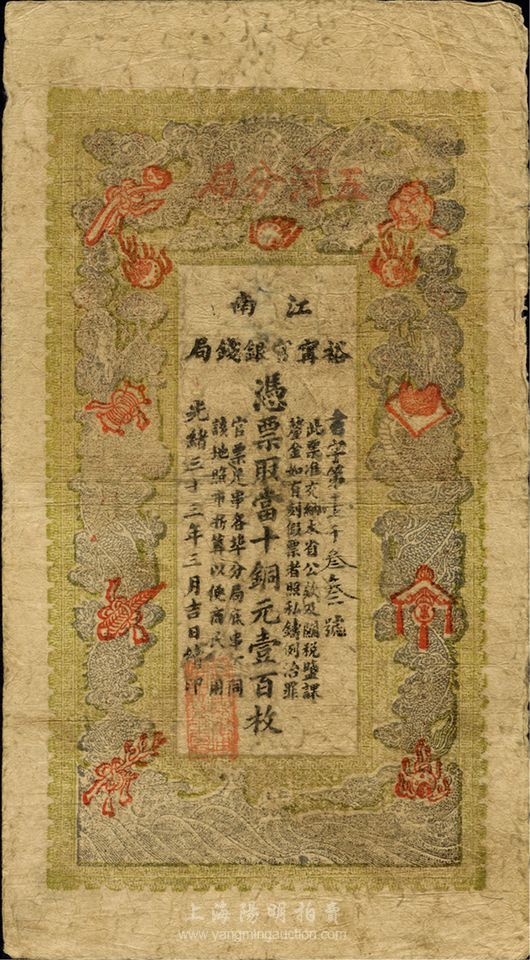 五河分局
江南
裕甯官銀錢局
字第壹千叁叁號
此票准交納本省公欵及關税鹽課
釐金如有刻假票者照私鑄例治罪
憑票取當十銅元壹百枚
官票足串各埠分局底串同
該地照市折算以便商民用
光緒三十三年三月吉日印
上海陽明拍賣
www.yangmingauction.com